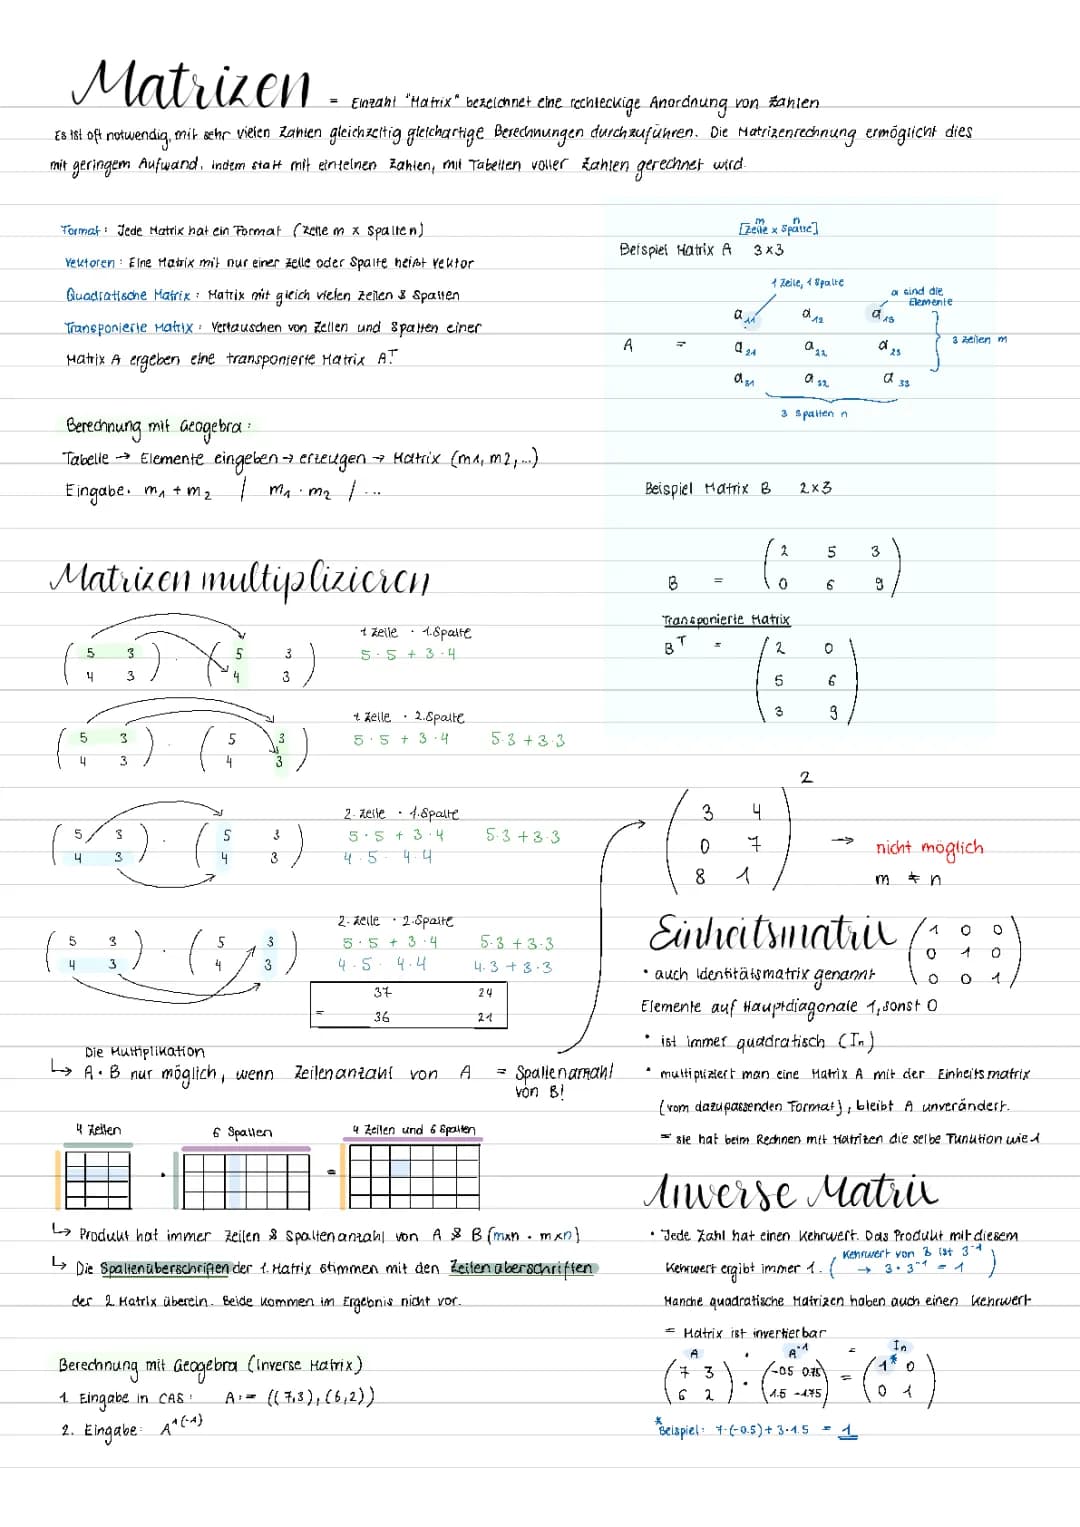 Matrizen = Einzahl "Matrix" bezeichnet eine rechteckige Anordnung von Zahlen
Es ist oft notwendig, mit sehr vielen Zahlen gleichzeitig gleichartige Berechnungen durchzuführen. Die Matrizenrechnung ermöglicht dies
mit geringem Aufwand, indem statt mit einzelnen Zahlen, mit Tabellen voller Zahlen gerechnet wird.
Format: Jede Matrix hat ein Format (Zeile m x Spalten)
Vektoren: Eine Matrix mit nur einer Zeile oder Spalte heißt Vektor
Quadratische Matrix: Matrix mit gleich vielen Zeilen & Spalten
Transponierte Matrix: Vertauschen von Zeilen und Spalten einer
Matrix A ergeben eine transponierte Matrix Aᵀ
Berechnung mit Geogebra:
Tabelle → Elemente eingeben → erzeugen → Matrix (m1, m2, ...)
Eingabe: m₁ + m₂ / m₁ · m₂ / ...
m n
[Zeile x Spalte]
Beispiel Matrix A 3x3
1 Zeile, 1 Spalte
a sind die
Elemente
a₁₁ a₁₂ a₁₃
A = a₂₁ a₂₂ a₂₃
3 Zeilen m
a₃₁ a₃₂ a₃₃
3 Spalten n
Beispiel Matrix B 2x3
2 5 3
B =
0 6 9
Transponierte Matrix
Bᵀ = 2 0
5 6
3 9
Matrizen multiplizieren
1 Zeile · 1.Spalte
( 5 3 ) · ( 5 3 ) 5·5 + 3·4
( 4 3 ) ( 4 3 )
1 Zeile · 2.Spalte
( 5 3 ) · ( 5 3 ) 5·5 + 3·4 5·3 + 3·3
( 4 3 ) ( 4 3 )
2. Zeile · 1.Spalte
( 5 3 ) · ( 5 3 ) 5·5 + 3·4 5·3 + 3·3
( 4 3 ) ( 4 3 ) 4·5 · 4·4
2. Zeile · 2.Spalte
( 5 3 ) · ( 5 3 ) 5·5 + 3·4 5·3 + 3·3
( 4 3 ) ( 4 3 ) 4·5 · 4·4 4·3 + 3·3
37 24
= 36 21
Die Multiplikation
↳ A·B nur möglich, wenn Zeilenanzahl von A = Spaltenanzahl
von B!
2
3 4
0 7 → nicht möglich
8 1 m ≠ n
4 Zeilen
6 Spalten
4 Zeilen und 6 Spalten
· =
↳ Produkt hat immer Zeilen & Spaltenanzahl von A & B (mxn · mxn)
↳ Die Spaltenüberschriften der 1. Matrix stimmen mit den Zeilenüberschriften
der 2 Matrix überein. Beide kommen im Ergebnis nicht vor.
Berechnung mit Geogebra (Inverse Matrix)
1. Eingabe in CAS: A:= ((7,3),(6,2))
2. Eingabe: A^(-1)
Einheitsmatrix
1 0 0
0 1 0
0 0 1
• auch Identitätsmatrix genannt
Elemente auf Hauptdiagonale 1, sonst 0
• ist immer quadratisch (Iₙ)
• multipliziert man eine Matrix A mit der Einheitsmatrix
(vom dazupassenden Format), bleibt A unverändert.
= sie hat beim Rechnen mit Matrizen die selbe Funktion wie 1
Inverse Matrix
• Jede Zahl hat einen Kehrwert. Das Produkt mit diesem
Kehrwert ergibt immer 1. ( Kehrwert von 3 ist 3⁻¹
→ 3·3⁻¹ = 1 )
Manche quadratische Matrizen haben auch einen Kehrwert
= Matrix ist invertierbar
A · A⁻¹ = In
( 7 3 ) · ( -0.5 0.75 ) = ( 1* 0 )
( 6 2 ) ( 1.5 -1.75 ) ( 0 1 )
* Beispiel: 7·(-0.5) + 3·1.5 = 1